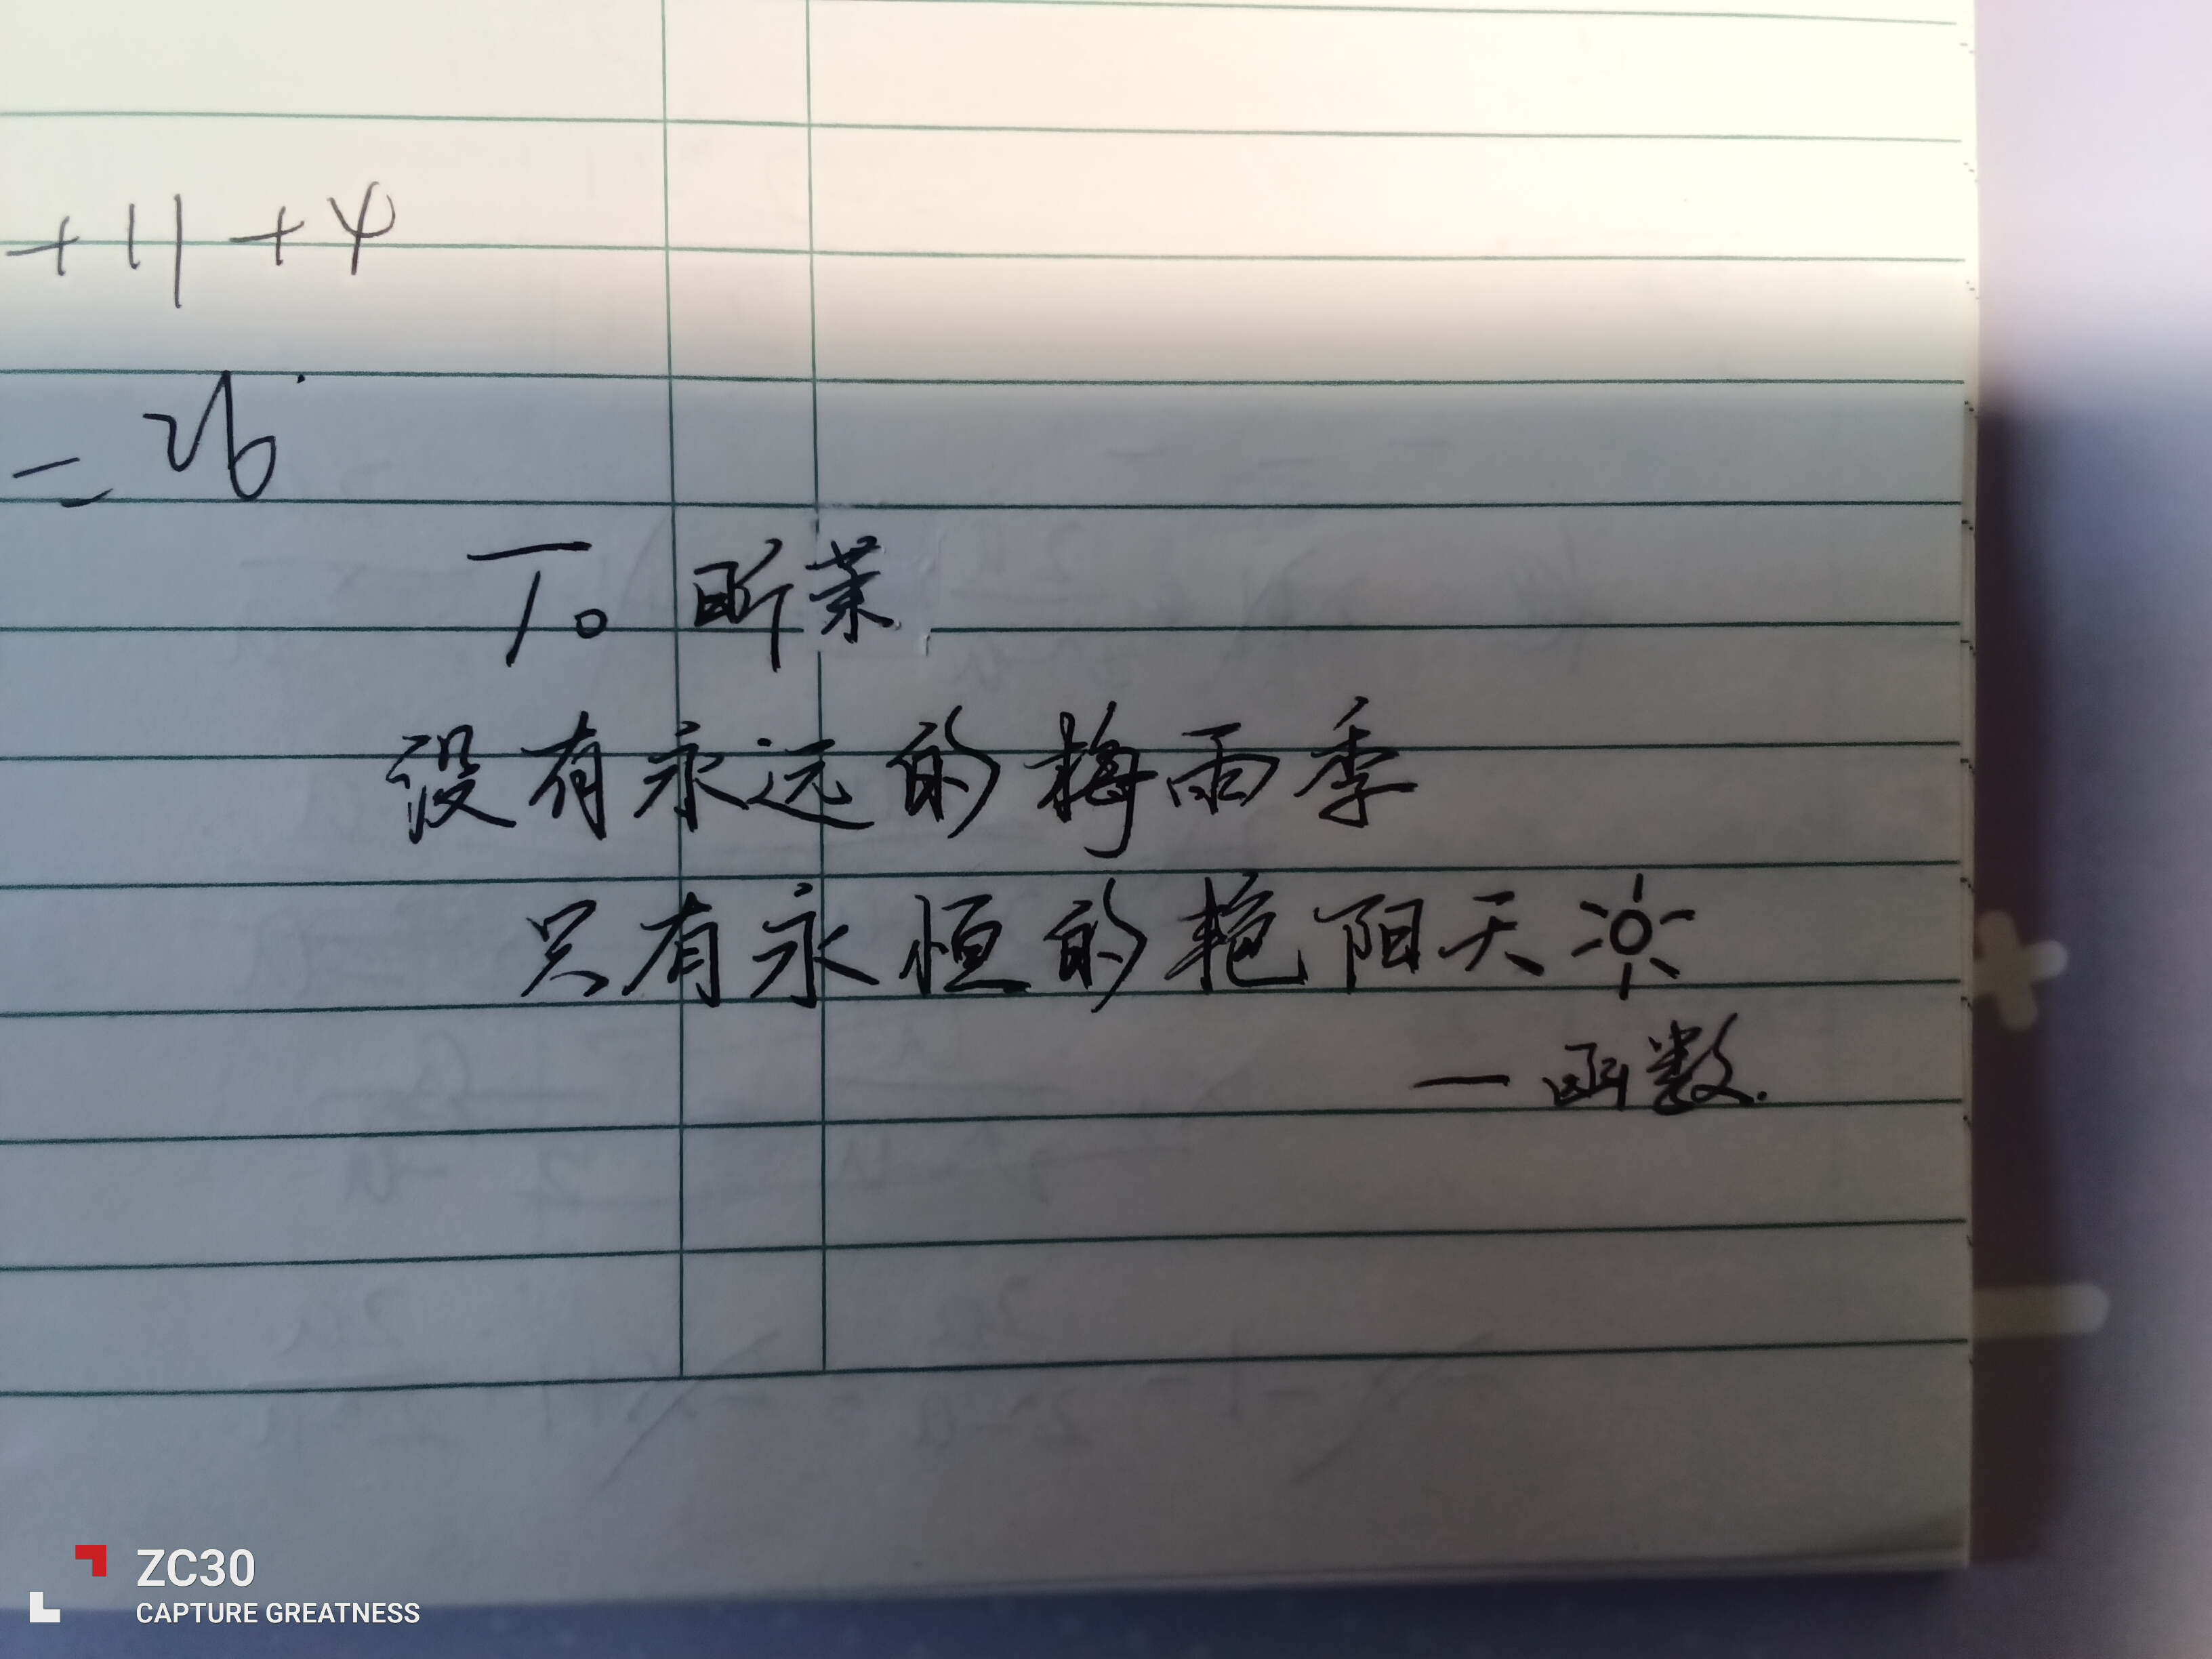 +11+4
=26
To 昕茉
没有永远的梅雨季
只有永恒的艳阳天
—函数.
ZC30
CAPTURE GREATNESS